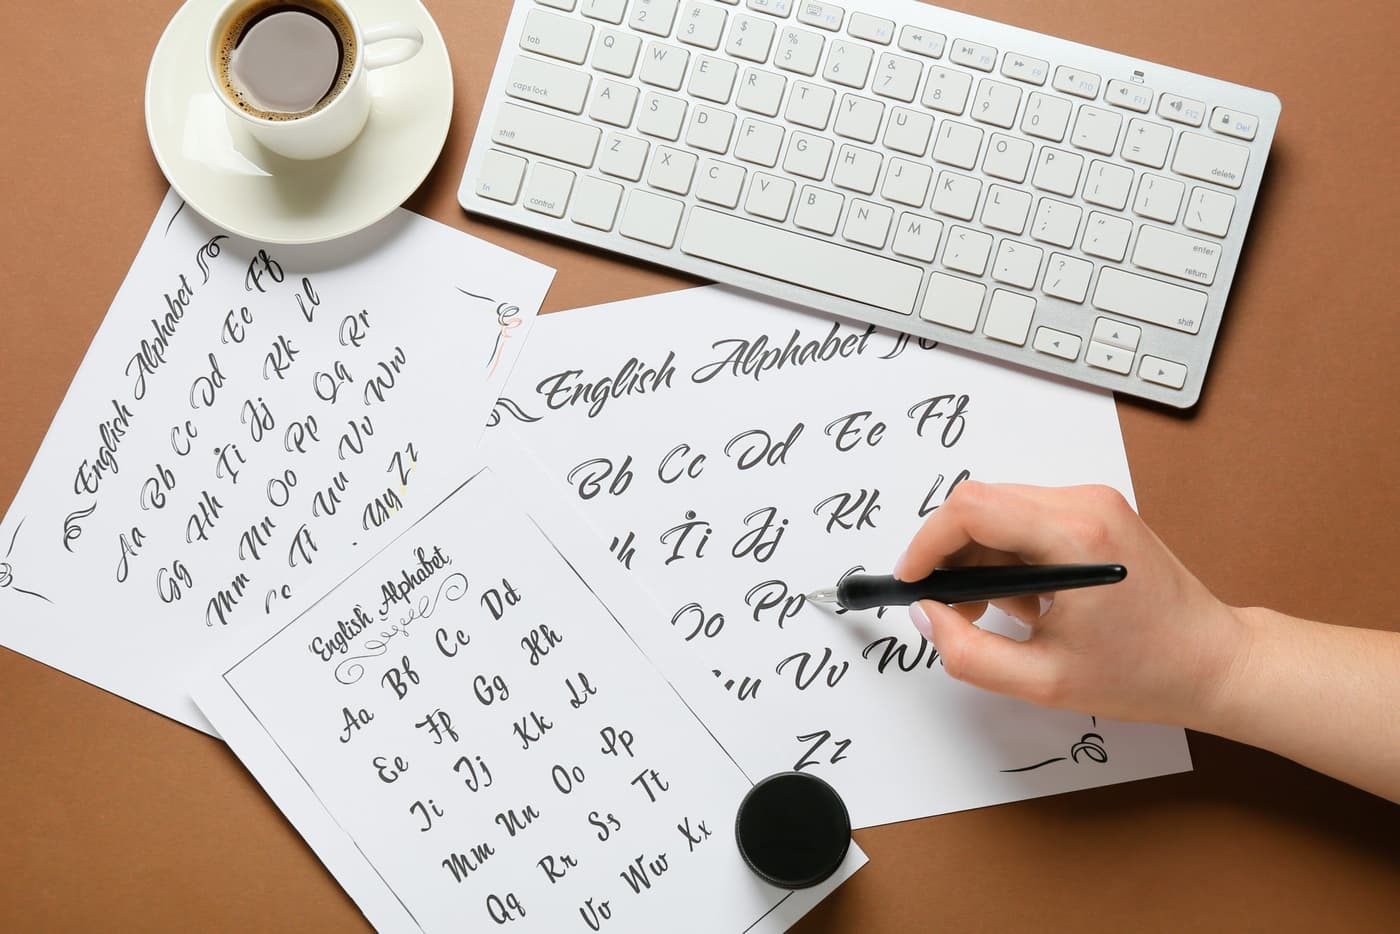 English Alphabet
Aa Bb Cc Dd Ee Ff
Gg Hh Ii Jj Kk Ll
Mm Nn Oo Pp Qq Rr
Tt Uu Vv Ww
Yy Zz
English Alphabet
Bb Cc Dd Ee Ff
Ii Jj Kk Ll
Oo Pp
Vv Ww
Zz
English Alphabet
Aa Bb Cc Dd
Ee Ff Gg Hh
Ii Jj Kk Ll
Mm Nn Oo Pp
Qq Rr Ss Tt
Vv Ww Xx
F4 F5 F6 F7 F8 F9 F10 F11 F12 Del
2 # 3 $ 4 % 5 ^ 6 & 7 * 8 ( 9 ) 0 _ - + = delete
tab Q W E R T Y U I O P { [ } ] | \
caps lock A S D F G H J K L : ; " ' enter return
shift Z X C V B N M < , > . ? / shift
fn control